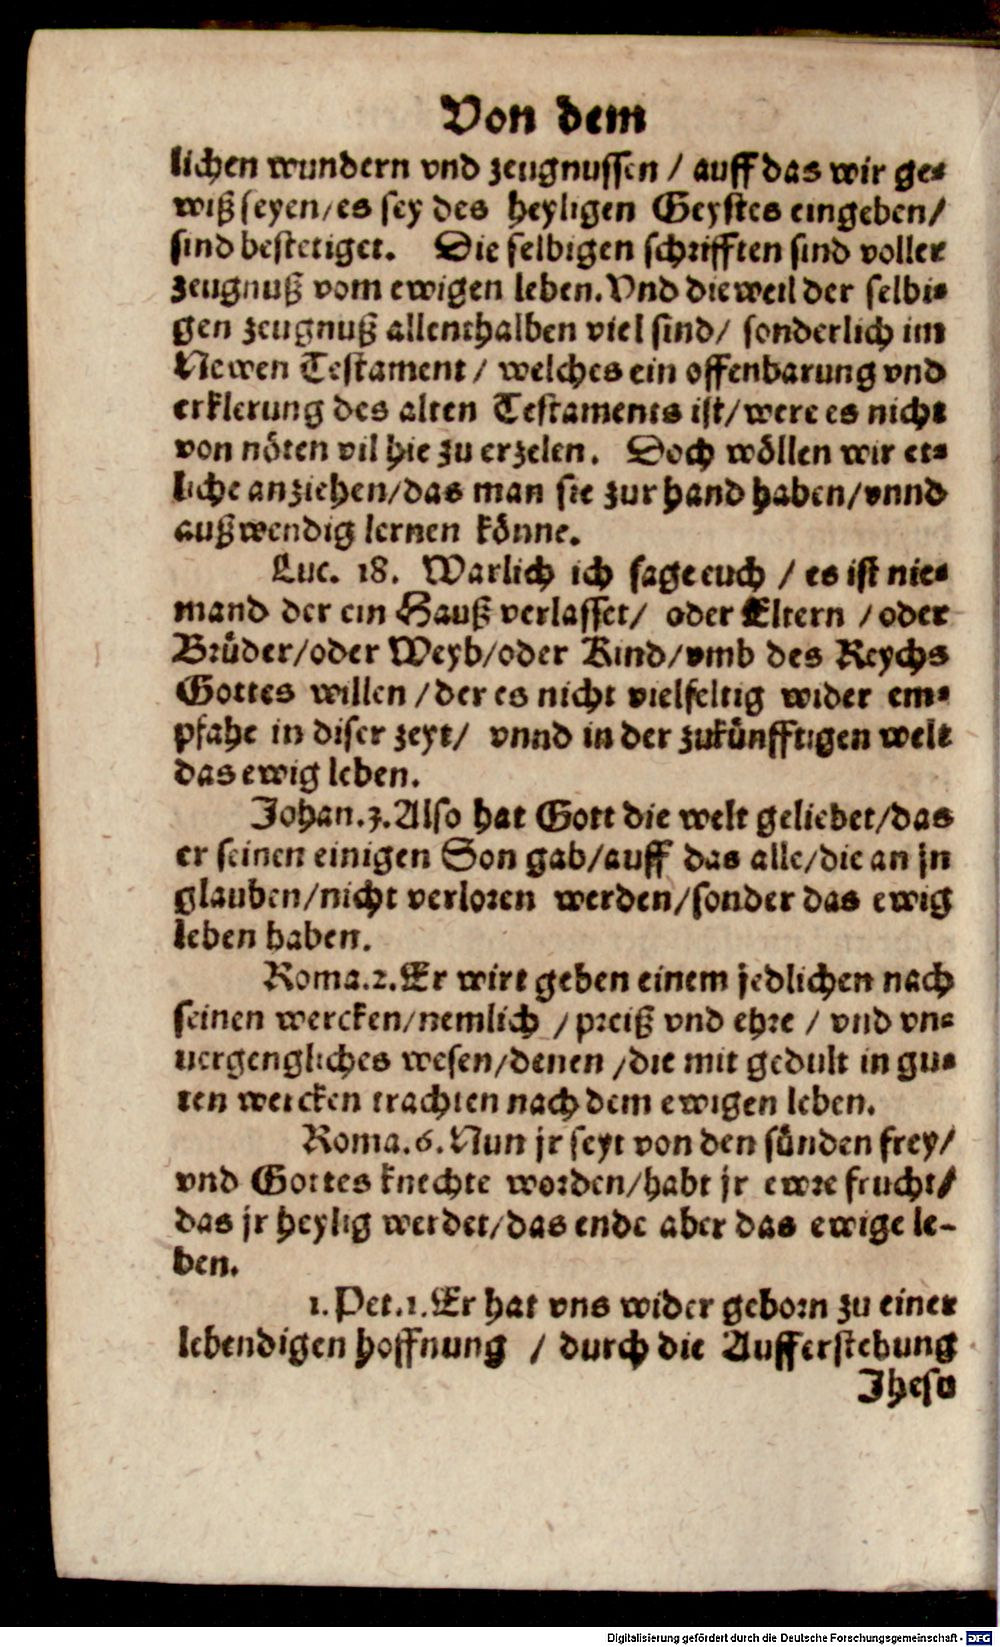 Von dem
lichen wundern vnd zeugnussen / auff das wir ge-
wiß seyen/es sey des heyligen Geystes eingeben/
sind bestetiget. Die selbigen schrifften sind voller
zeugnuß vom ewigen leben. Vnd dieweil der selbi-
gen zeugnuß allenthalben viel sind/ sonderlich im
Newen Testament / welches ein offenbarung vnd
erklerung des alten Testaments ist/were es nicht
von nöten vil hie zu erzelen. Doch wöllen wir et-
liche anziehen/das man sie zur hand haben/vnnd
außwendig lernen könne.
Luc. 18. Warlich ich sage euch / es ist nie-
mand der ein Hauß verlasset/ oder Eltern / oder
Brüder/oder Weyb/oder Kind/vmb des Reychs
Gottes willen / der es nicht vielfeltig wider em-
pfahe in diser zeyt/ vnnd in der zukünfftigen welt
das ewig leben.
Johan.3. Also hat Gott die welt geliebet/das
er seinen einigen Son gab/auff das alle/die an jn
glauben/nicht verloren werden/sonder das ewig
leben haben.
Roma.2. Er wirt geben einem jedlichen nach
seinen wercken/nemlich / preiß vnd ehre / vnd vn-
uergengliches wesen/denen /die mit gedult in gu-
ten wercken trachten nach dem ewigen leben.
Roma.6. Nun jr seyt von den sünden frey/
vnd Gottes knechte worden/habt jr ewre frucht/
das jr heylig werdet/das ende aber das ewige le-
ben.
1. Pet.1. Er hat vns wider geborn zu einer
lebendigen hoffnung / durch die Aufferstehung
Jhesu
Digitalisierung gefördert durch die Deutsche Forschungsgemeinschaft - DFG